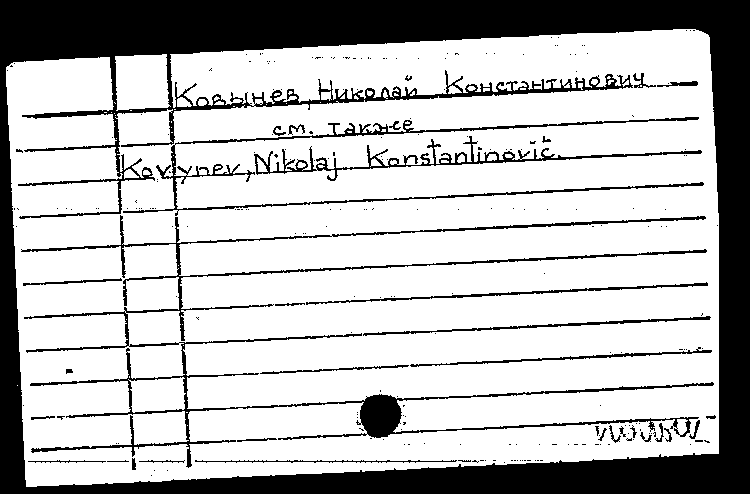 Ковынев, Николай Константинович
см. также
Kovynev, Nikolaj Konstantinovič.